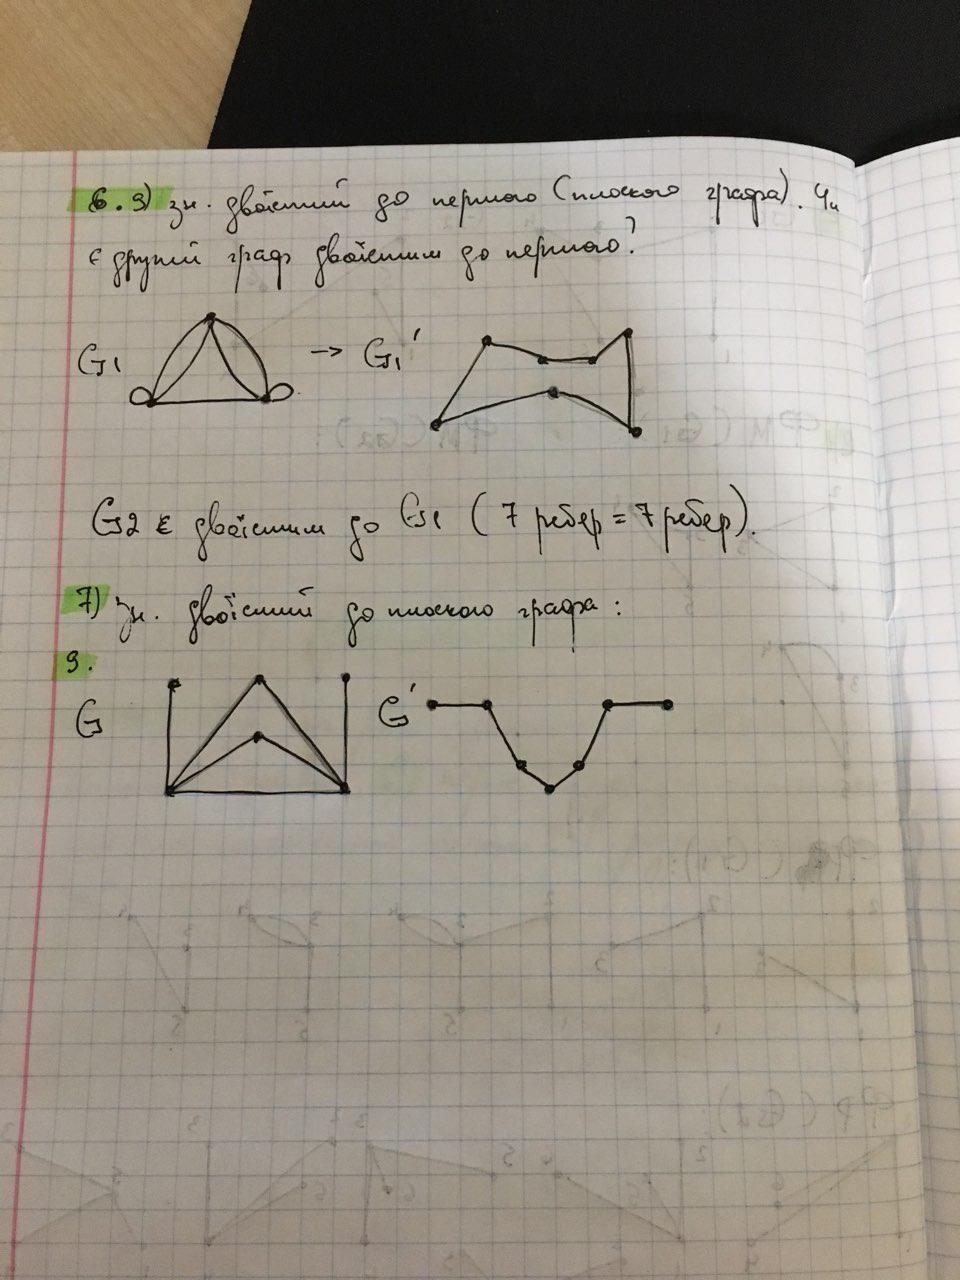 6. 9) зн. двоїстий до першого (плоского графа). Чи
є другий граф двоїстим до першого?
G1 → G1'
G2 є двоїстим до G1 ( 7 ребер = 7 ребер).
7) Зн. двоїстий до плоского графа :
9.
G G'